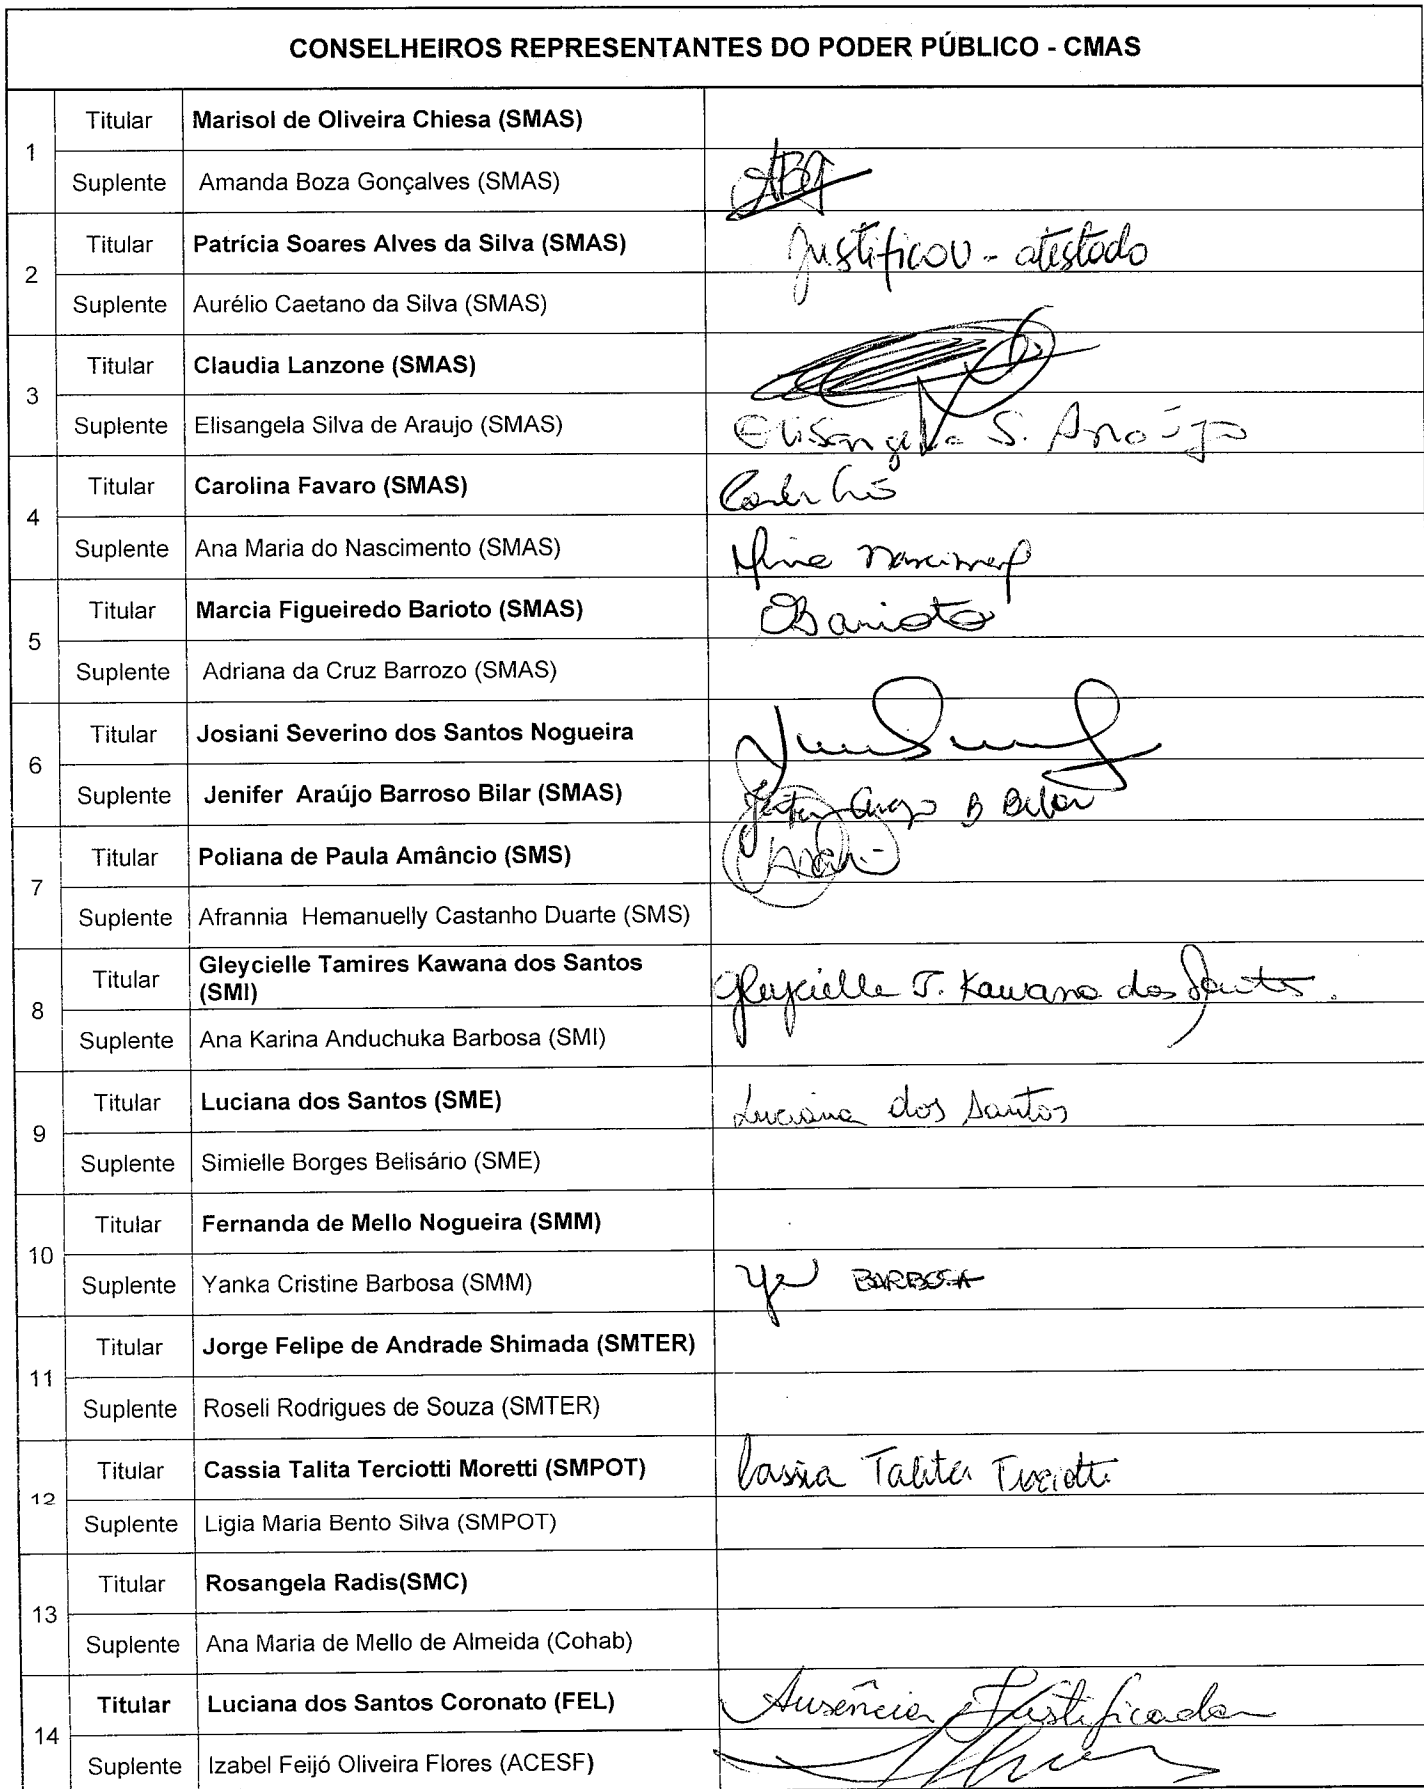 CONSELHEIROS REPRESENTANTES DO PODER PÚBLICO - CMAS
1
Titular Marisol de Oliveira Chiesa (SMAS)
Suplente Amanda Boza Gonçalves (SMAS) ABG
2
Titular Patrícia Soares Alves da Silva (SMAS) Justificou - atestado
Suplente Aurélio Caetano da Silva (SMAS)
3
Titular Claudia Lanzone (SMAS)
Suplente Elisangela Silva de Araujo (SMAS) Elisangela S. Araújo
4
Titular Carolina Favaro (SMAS)
Suplente Ana Maria do Nascimento (SMAS)
5
Titular Marcia Figueiredo Barioto (SMAS) Barioto
Suplente Adriana da Cruz Barrozo (SMAS)
6
Titular Josiani Severino dos Santos Nogueira
Suplente Jenifer Araújo Barroso Bilar (SMAS) B Bilar
7
Titular Poliana de Paula Amâncio (SMS)
Suplente Afrannia Hemanuelly Castanho Duarte (SMS)
8
Titular Gleycielle Tamires Kawana dos Santos
(SMI) Gleycielle T. Kawana dos Santos.
Suplente Ana Karina Anduchuka Barbosa (SMI)
9
Titular Luciana dos Santos (SME) Luciana dos Santos
Suplente Simielle Borges Belisário (SME)
10
Titular Fernanda de Mello Nogueira (SMM)
Suplente Yanka Cristine Barbosa (SMM) BARBOSA
11
Titular Jorge Felipe de Andrade Shimada (SMTER)
Suplente Roseli Rodrigues de Souza (SMTER)
12
Titular Cassia Talita Terciotti Moretti (SMPOT) Cassia Talita Terciotti
Suplente Ligia Maria Bento Silva (SMPOT)
13
Titular Rosangela Radis(SMC)
Suplente Ana Maria de Mello de Almeida (Cohab)
14
Titular Luciana dos Santos Coronato (FEL) Ausência Justificada
Suplente Izabel Feijó Oliveira Flores (ACESF)